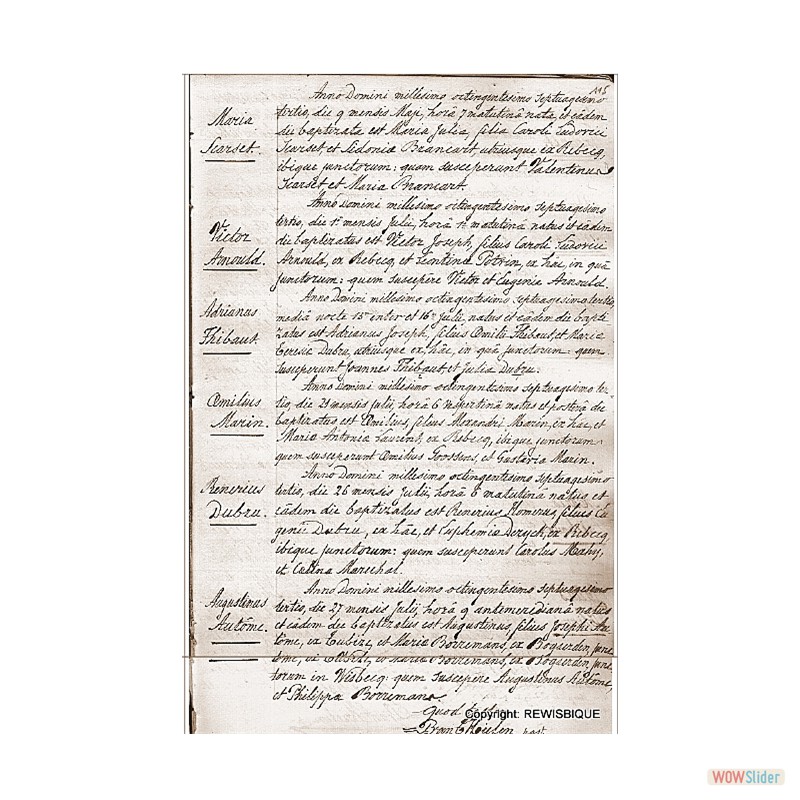 115
Anno Domini millesimo octingentesimo septuagesimo
Maria
Scarset.
tertio, die 9 mensis Maji, horâ 7 matutinâ nata, et eâdem
die baptizata est Maria Julia, filia Caroli Ludovici
Scarset et Sidoniæ Brancart utriusque ex Rebecq,
ibique junctorum: quam susceperunt Valentinus
Scarset et Maria Brancart.
Anno Domini millesimo octingentesimo septuagesimo
Victor
Arnould.
tertio, die 1ª mensis Julii, horâ 1ª matutinâ natus et eâdem
die baptizatus est Victor Joseph, filius Caroli Ludovici
Arnould, ex Rebecq, et Leontina Potvin, ex hâc, in quâ
junctorum: quem suscepêre Victor et Eugenia Arnould.
Anno Domini millesimo octingentesimo septuagesimo tertio
Adrianus
Thibaut.
mediâ nocte 15ª inter et 16ª julii, natus et eâdem die bapti-
zatus est Adrianus Joseph, filius Æmilii Thibaut, et Maria
Teresiæ Dubru, utriusque ex hâc, in quâ junctorum: quem
susceperunt Joannes Thibaut et Julia Dubru.
Anno Domini millesimo octingentesimo septuagesimo ter-
Æmilius
Marin.
tio, die 23 mensis Julii, horâ 6 vespertinâ natus et posterâ die
baptizatus est Æmilius, filius Alexandri Marin, ex hâc, et
Maria Antonia Laurent, ex Rebecq, ibique junctorum:
quem susceperunt Æmilius Goossens, et Gustavia Marin.
Anno Domini millesimo octingentesimo septuagesimo
Renerius
Dubru.
tertio, die 26 mensis Julii, horâ 8 matutinâ natus et
eâdem die baptizatus est Renerius Homerus, filius Eu-
genii Dubru, ex hâc, et Euphemia Deryck, ex Rebecq,
ibique junctorum: quem susceperunt Carolus Mahy,
et Celina Marechal.
Anno Domini millesimo octingentesimo septuagesimo
Augustinus
Autôme.
tertio, die 27 mensis Julii, horâ 9 antemeridianâ natus
et eâdem die baptizatus est Augustinus, filius Josephi Au-
tôme, ex Tubize, et Maria Borremans, ex Bogarden, junc-
tôme, ex Tubize, et Maria Borremans, ex Bogarden, junc-
torum in Wisbecq: quem suscepêre Augustinus Autôme,
et Philippa Borremans.
Quod
Copyright: REWISBIQUE
past.
WOWSlider